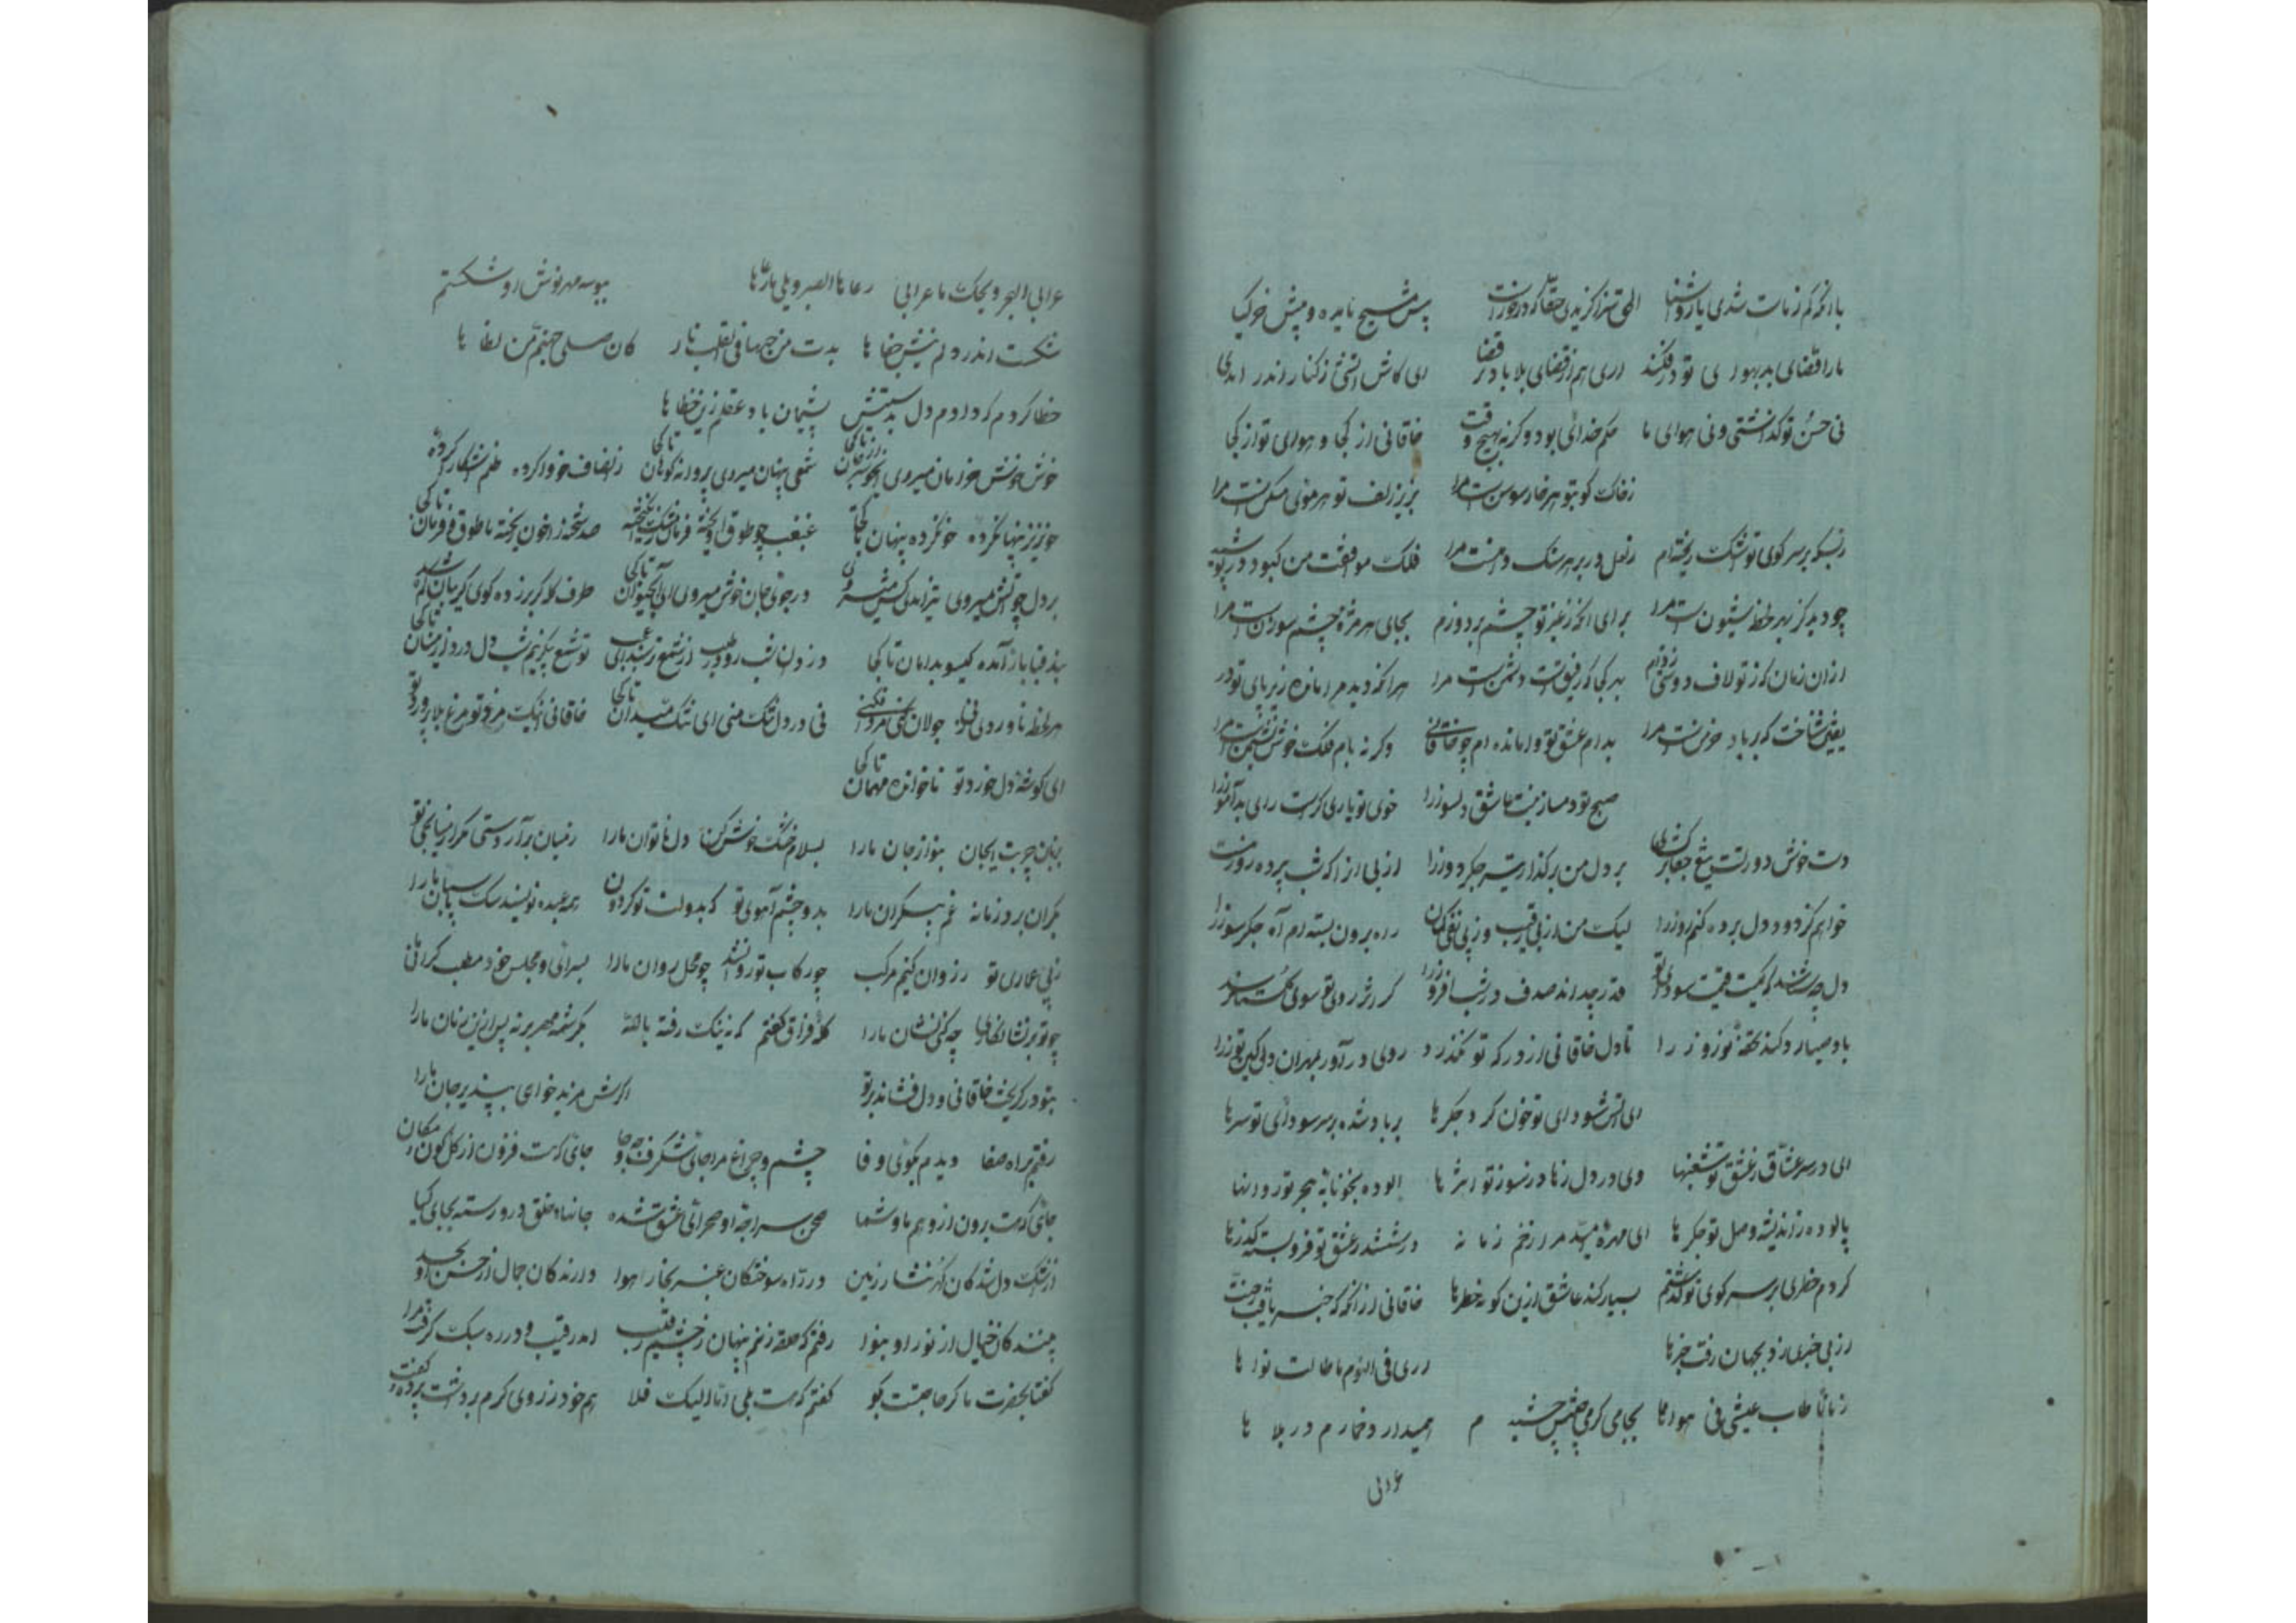 با آنکه کم ز مات شدی یار و آشنا الحق سزا گزیدی حقا که درخورست پیش مسیح مایده و پیش خر گیا
ما را قضای بد بهوای تو درفکند آری هم از قضای بلا باد در قضا ای کاش آتشی ز کنار اندر آمدی
نی حسن تو گذاشتی و نی هوای ما حکم خدای بود وگرنه بهیچ وقت خاقانی از کجا و هوای تو از کجا
ز خاک کوی تو هر خار سوسن است مرا بزیر زلف تو هر موئی مسکنست مرا
ز بسکه بر سر کوی تو اشک ریخته‌ام ز لعل در بر هر سنگ دامنست مرا فلک موافقت من کبود در پوشید
چو دید کز تو بهر لحظه شیون است مرا برای آنکه ز غیر تو چشم بردوزم بجای هر مژه بر چشم سوزن است مرا
از آن زمان که ز تو لاف دوستی زده‌ام بهر کجا که رفیقیست دشمن است مرا هر آنکه دید مرا مانده زیر پای تو در
یقین شناخت که بر باد خرمنست مرا بدام عشق تو وامانده‌ام چو خاقانی وگرنه بام فلک خوش نشیمن است مرا
صبح تو دمساز نیست عاشق دلسوز را خوی تو یاری گرست رای بدآموز را
دست خوش دورتست تیغ جفا برکش‌های بر دل من برگذار تیر جگردوز را از پی آن را که شب پرده روز منست
خواهم کز دود دل پرده کنم روز را لیک من از پی رقیب وز پی نفی گمان راه برون بسته‌ام آه جگرسوز را
دل چه شناسد که چیست قیمت سودای تو قدر چه داند صدف در شب‌افروز را گر اثر روی تو سوی گلستان رسد
باد صبا رد کند تحفه نوروز را تا دل خاقانی از در که تو نگذرد روی درآور بمهر آن دل کین‌توز را
ای آتش سودای تو خون کرده جگرها بر باد شده بر سر سودای تو سرها
ای در سر عشاق ز عشق تو شغبها وی در دل زهاد ز سوز تو اثرها آلوده بخونابه هجر تو روانها
پالوده ز اندیشه وصل تو جگرها ای مهره امید مرا زخم زمانه در ششدر عشق تو فروبسته گذرها
کردم خطری بر سر کوی تو گذشتم بسیار کند عاشق ازین گونه خطرها خاقانی از آنگه که خبر یافت ز عشقت
از بی خبری او بجهان رفت خبرها اری فی النوم ما طالت نواها
زمانا طاب عیشی فی هواها بجامی کز می وصلش چشیدم همیدارد خمارم در بلاها
عرانی
عرانی الهجر ویحک ما عرانی رعاها الصبر ویلی مارعاها ببوسه مهر نوش او شکستم
شکست اندر دلم نیش جفاها بدت من حبها فی القلب نار کان صلی جهنم من لظاها
خطا کردم که دادم دل بدستش پشیمان باد عقلم زین خطاها
خوش خوش خرامان میروی ای خوشتر از جان تا کی شمعی پنهان میروی پروانه گویان تا کی ز انصاف خو واکرده ظلم آشکارا کرده
خونریز پنهان کرده خو کرده پنهان تا کجا غبغب چو طوق آویخته فرمان ز مشک انگیخته صد شحنه را خون ریخته با طوق فرمان تا کی
بر دل چو آتش میروی تیز آمدی کش میروی در جوی جان خوش میروی ای آب حیوان تا کی طرف کله کژ بر زده گوی گریبان گم شده
بند قبا باز آمده گیسو بدامان تا کجا دزدان شبرو در طلب از شمع ترسند ای عجب تو شمع پیکر نیم شب دل دزدی این سان تا کی
هر لحظه ناوردی زنی جولان کنی مرد افکنی نی در دل تنگ منی ای تنگ میدان تا کی خاقانی اینک مرد تو مرغ بلا پرورد تو
ای گوشه دل خورد تو ناخوانده مهمان تا کی
بزبان چرب ای جان بنواز جان ما را بسلام خشک خوش کن دل ناتوان ما را ز میان برآر دستی مگر از میانجی تو
بکران برد زمانه غم بیکران ما را بدو چشم آهوی تو که بدولت تو گردون همه عبده نویسد سگ پاسبان ما را
ز پی عماری تو ز روان کنیم مرکب چو رکاب تو روان شد چو محل روان ما را بسرای و مجلس خود مطلب گرانی
چو تو بی نشان از اها چه کنی نشان ما را گله فراق گفتم که نه نیک رفت با ما بکرشمه مهر بر نه پس ازین زبان ما را
بتو در گریخت خاقانی و دل فشاند بر تو اگرش مزید خواهی بپذیر جان ما را
رفتم براه صفا دیدم بکوی وفا چشم و چراغ مرا جائی شگرف و چه جا جائی که هست فزون از کل کون و مکان
جائی که هست برون از وهم ما و شما صحن سراچه او صحرای عشق شده جانهای خلق درو رسته بجای گیا
از اشک دلشدگان گوهر نثار زمین در آه سوختگان عنبر بخار هوا دارندگان جمال از حسن او بحسد
بینندگان خیال از نور او بنوا رفتم که حلقه زنم پنهان ز چشم رقیب آمد رقیب و در ره سبک گرفت مرا
گفتا بحضرت ما گر حاجتست بگو گفتم که هست بلی اما الیک فلا هم خود ز روی کرم برداشت پرده و گفت